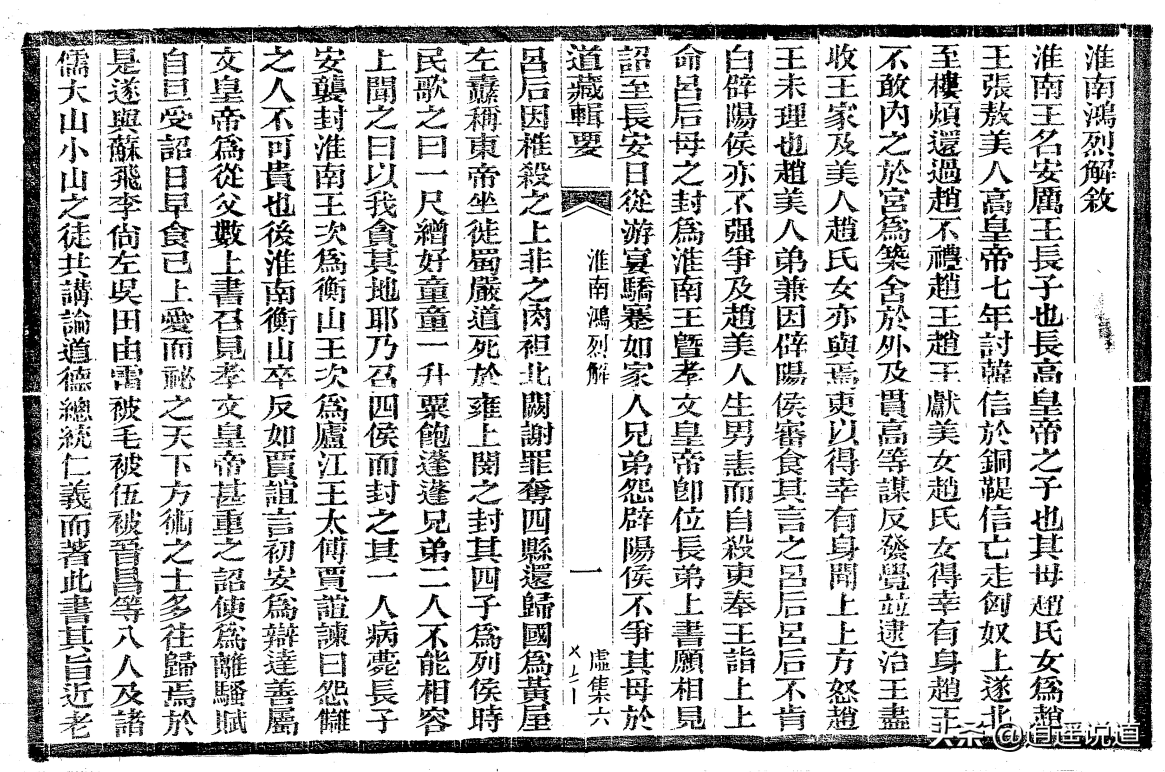 淮南鴻烈解敘
淮南王名安厲王長子也長高皇帝之子也其母趙氏女為趙
王張敖美人高皇帝七年討韓信於銅鞮信亡走匈奴上遂北
至樓煩還過趙不禮趙王趙王獻美女趙氏女得幸有身趙王
不敢內之於宮為築舍於外及貫高等謀反發覺並逮治王盡
收王家及美人趙氏女亦與焉吏以得幸有身聞上上方怒趙
王未理也趙美人弟兼因辟陽侯審食其言之呂后呂后不肯
白辟陽侯亦不强爭及趙美人生男恚而自殺吏奉王詣上上
命呂后母之封為淮南王暨孝文皇帝卽位長弟上書願相見
詔至長安日從游宴驕蹇如家人兄弟怨辟陽侯不爭其母於
道藏輯要
淮南鴻烈解
一
虛集六
呂后因椎殺之上非之肉袒北闕謝罪奪四縣還歸國為黃屋
左纛稱東帝坐徙蜀嚴道死於雍上閔之封其四子為列侯時
民歌之曰一尺繒好童童一升粟飽蓬蓬兄弟二人不能相容
上聞之曰以我貪其地耶乃召四侯而封之其一人病薨長子
安襲封淮南王次為衡山王次為廬江王太傅賈誼諫曰怨讎
之人不可貴也後淮南衡山卒反如賈誼言初安為辯達善屬
文皇帝為從父數上書召見孝文皇帝甚重之詔使為離騷賦
自旦受詔日早食已上愛而祕之天下方術之士多往歸焉於
是遂與蘇飛李尚左吳田由雷被毛被伍被晉昌等八人及諸
儒大山小山之徒共講論道德總統仁義而著此書其旨近老
头条 @逍遥说道